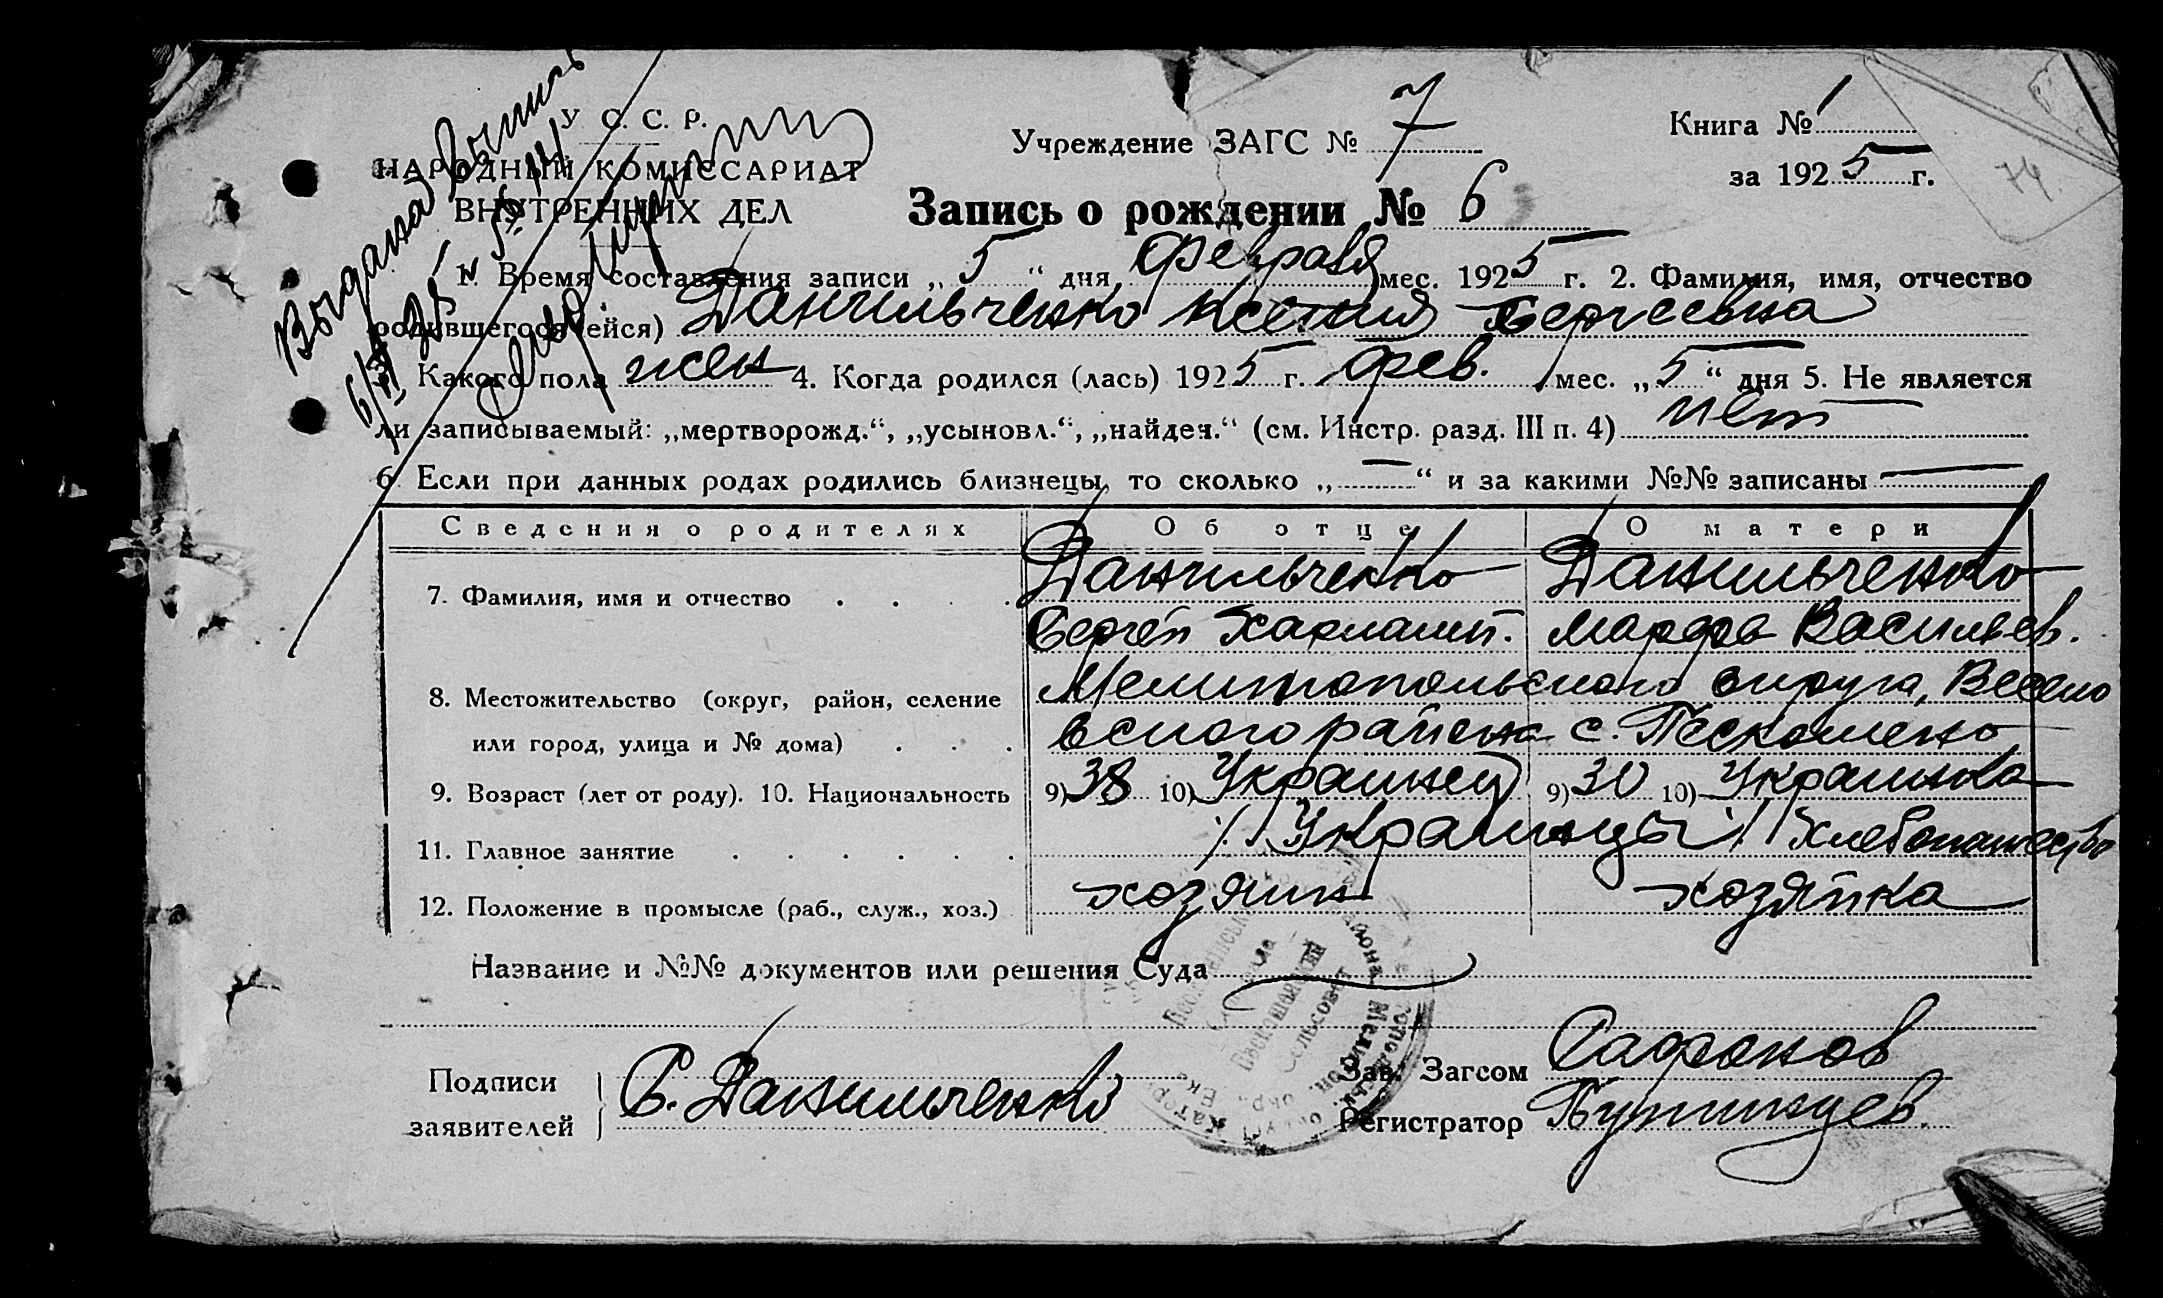 Выдана Выпись
У. С. С. Р.
НАРОДНЫЙ КОМИССАРИАТ
ВНУТРЕННИХ ДЕЛ
Учреждение ЗАГС № 7
Книга № 1
за 1925 г.
74.
Запись о рождении № 6
1. Время составления записи „5“ дня февраля мес. 1925 г. 2. Фамилия, имя, отчество
родившегося (ейся) Данильченко Ксения Сергеевна
3. Какого пола жен 4. Когда родился (лась) 1925 г. фев. мес. „5“ дня 5. Не является
ли записываемый: „мертворожд.“, „усыновл.“, „найден.“ (см. Инстр. разд. III п. 4) нет
6. Если при данных родах родились близнецы, то сколько „—“ и за какими №№ записаны —
Сведения о родителях Об отце О матери
7. Фамилия, имя и отчество . . . . Данильченко Данильченко
Сергей Харламп. Марфа Васильев.
8. Местожительство (округ, район, селение Мелитопольского округа, Весело
или город, улица и № дома) . . . вского района с. Пескошено
9. Возраст (лет от роду). 10. Национальность 9) 38 10) Украинец 9) 30 10) Украинка
11. Главное занятие . . . . . . /Украинцы/ Хлебопашество
12. Положение в промысле (раб., служ., хоз.) хозяин хозяйка
Название и №№ документов или решения Суда
Подписи
заявителей С. Данильченко
Зав. Загсом Сафонов
Регистратор
сельсовет